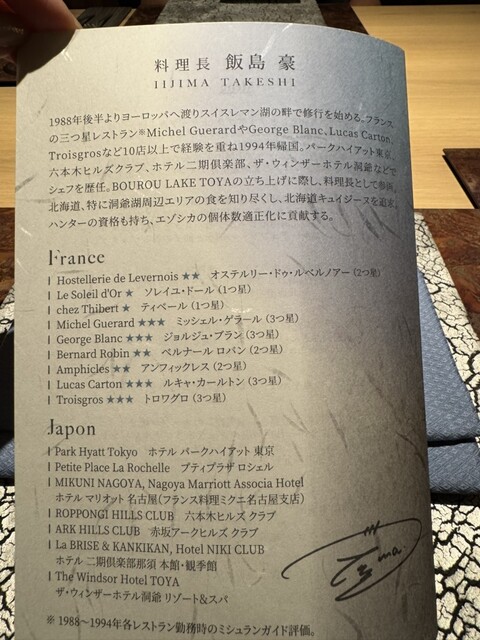 料理長 飯島 豪
IIJIMA TAKESHI
1988年後半よりヨーロッパへ渡りスイスレマン湖の畔で修行を始める。フランス
の三つ星レストラン※Michel GuerardやGeorge Blanc、Lucas Carton、
Troisgrosなど10店以上で経験を重ね1994年帰国。パークハイアット東京、
六本木ヒルズクラブ、ホテル二期倶楽部、ザ・ウィンザーホテル洞爺などで
シェフを歴任。BOUROU LAKE TOYAの立ち上げに際し、料理長として参画。
北海道、特に洞爺湖周辺エリアの食を知り尽くし、北海道キュイジーヌを追求。
ハンターの資格も持ち、エゾシカの個体数適正化に貢献する。
France
| Hostellerie de Levernois ★★ オステルリー・ドゥ・ルベルノアー (2つ星)
| Le Soleil d'Or ★ ソレイユ・ドール (1つ星)
| chez Thibert ★ ティベール (1つ星)
| Michel Guerard ★★★ ミッシェル・ゲラール (3つ星)
| George Blanc ★★★ ジョルジュ・ブラン (3つ星)
| Bernard Robin ★★ ベルナール ロバン (2つ星)
| Amphicles ★★ アンフィックレス (2つ星)
| Lucas Carton ★★★ ルキャ・カールトン (3つ星)
| Troisgros ★★★ トロワグロ (3つ星)
Japon
| Park Hyatt Tokyo ホテル パークハイアット 東京
| Petite Place La Rochelle プティプラザ ロシェル
| MIKUNI NAGOYA, Nagoya Marriott Associa Hotel
ホテル マリオット 名古屋(フランス料理ミクニ名古屋支店)
| ROPPONGI HILLS CLUB 六本木ヒルズ クラブ
| ARK HILLS CLUB 赤坂アークヒルズ クラブ
| La BRISE & KANKIKAN, Hotel NIKI CLUB
ホテル 二期倶楽部那須 本館・観季館
| The Windsor Hotel TOYA
ザ・ウィンザーホテル洞爺 リゾート&スパ
※ 1988〜1994年各レストラン勤務時のミシュランガイド評価。